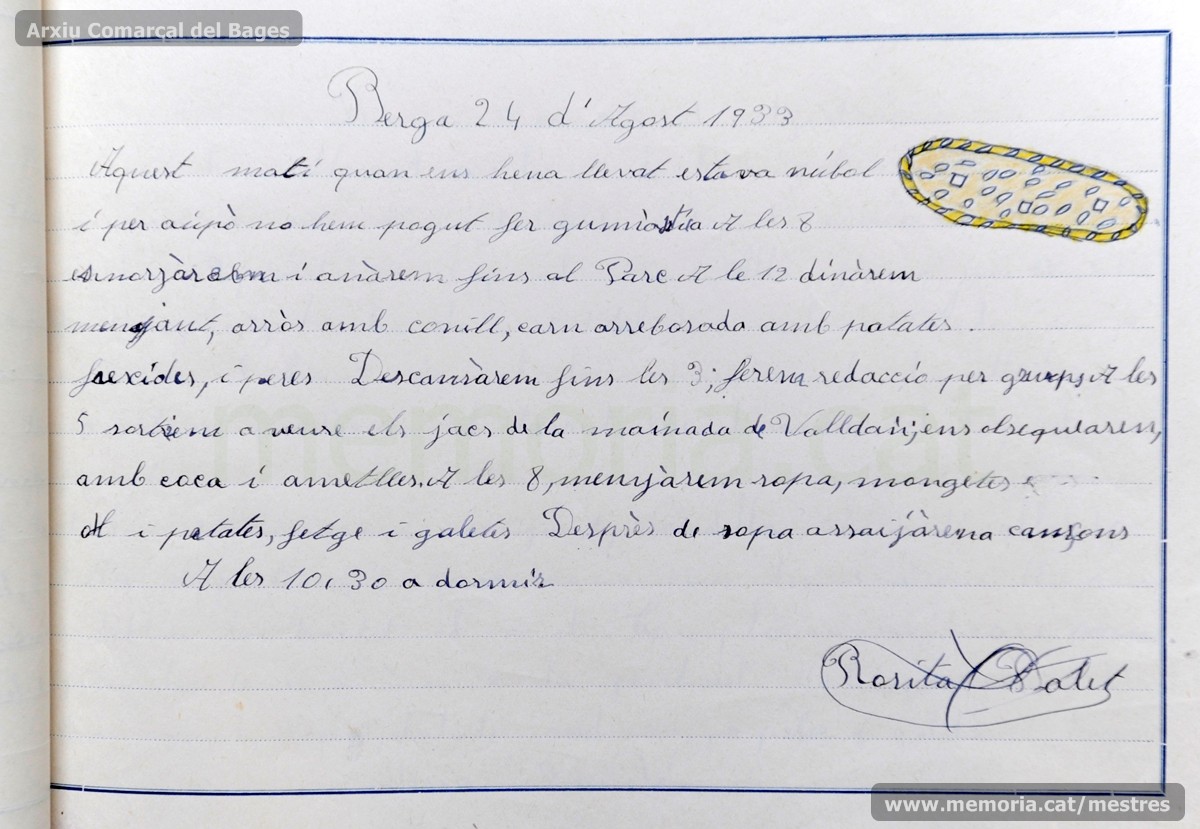 Arxiu Comarcal del Bages
Berga 24 d'Agost 1933
Aquest matí quan ens hem llevat estava núbol
i per això no hem pogut fer gimnàstia A les 8
esmorzàrem i anàrem fins al Parc A le 12 dinàrem
menjant, arròs amb conill, carn arreborada amb patates.
frexides, i peres Descansàrem fins les 3; ferem redacció per grups, A les
5 sortirem a veure els jocs de la mainada de Valldan; ens obsequiarem,
amb coca i ametlles. A les 8, menjàrem sopa, mongetes
i patates, fetge i galetes Desprès de sopa assaijàrem cançons
A les 10,30 a dormir
Rosita Salet
memoria.cat
www.memoria.cat/mestres